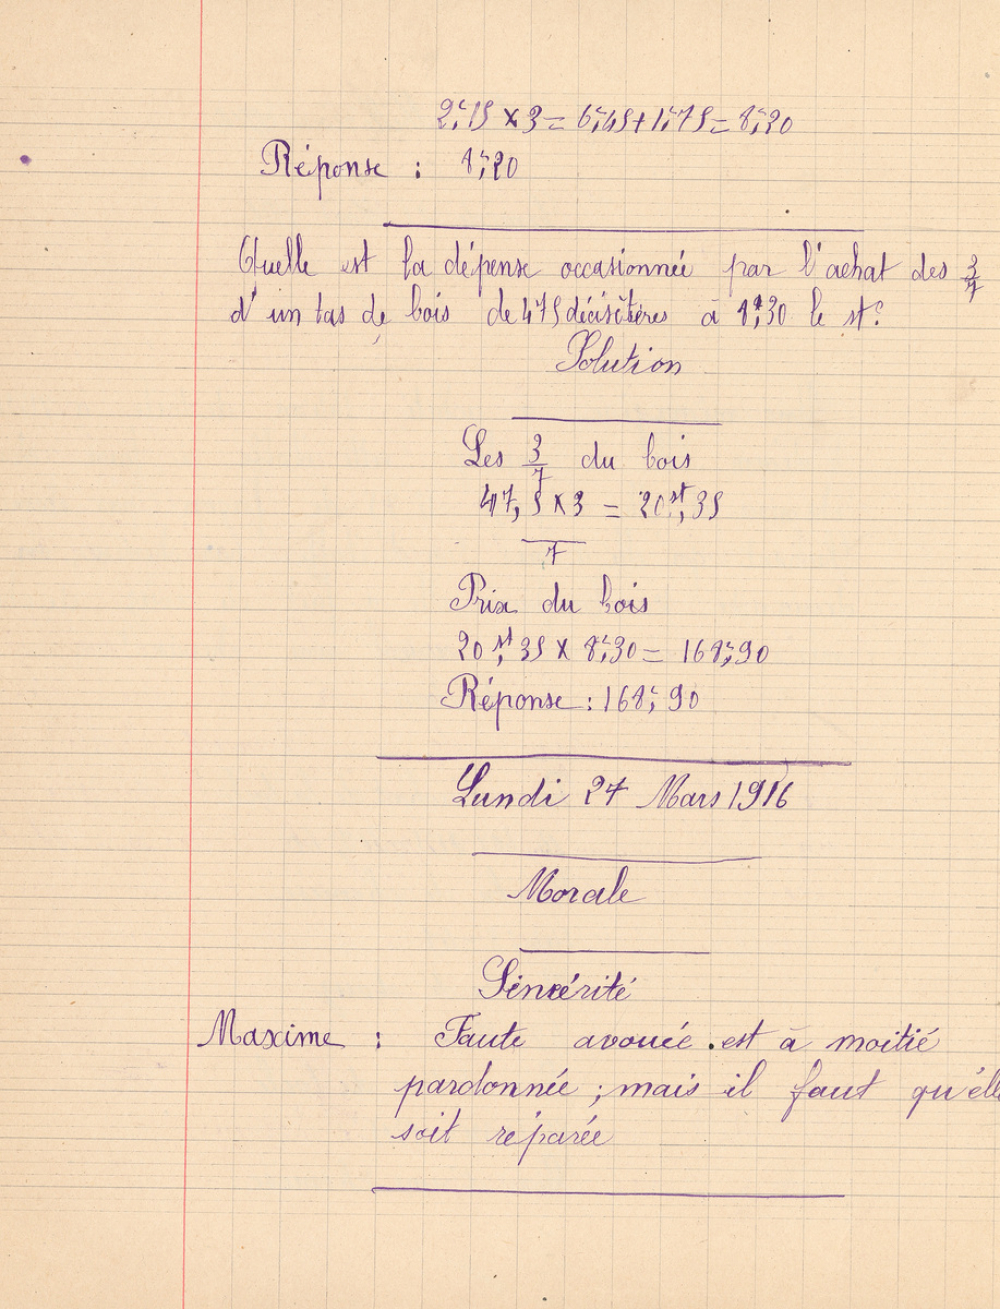 2f,15 × 3 = 6f,45 + 1f,75 = 8f,20
Réponse : 8f,20
Quelle est la dépense occasionnée par l'achat des 3/7
d'un tas de bois de 475 décistères à 8f,30 le st ?
Solution
Les 3/7 du bois
47,5 × 3 = 20st,35
7
Prix du bois
20st,35 × 8f,30 = 168f,90
Réponse : 168f,90
Lundi 27 Mars 1916
Morale
Sincérité
Maxime : Faute avouée est à moitié
pardonnée ; mais il faut qu'elle
soit réparée